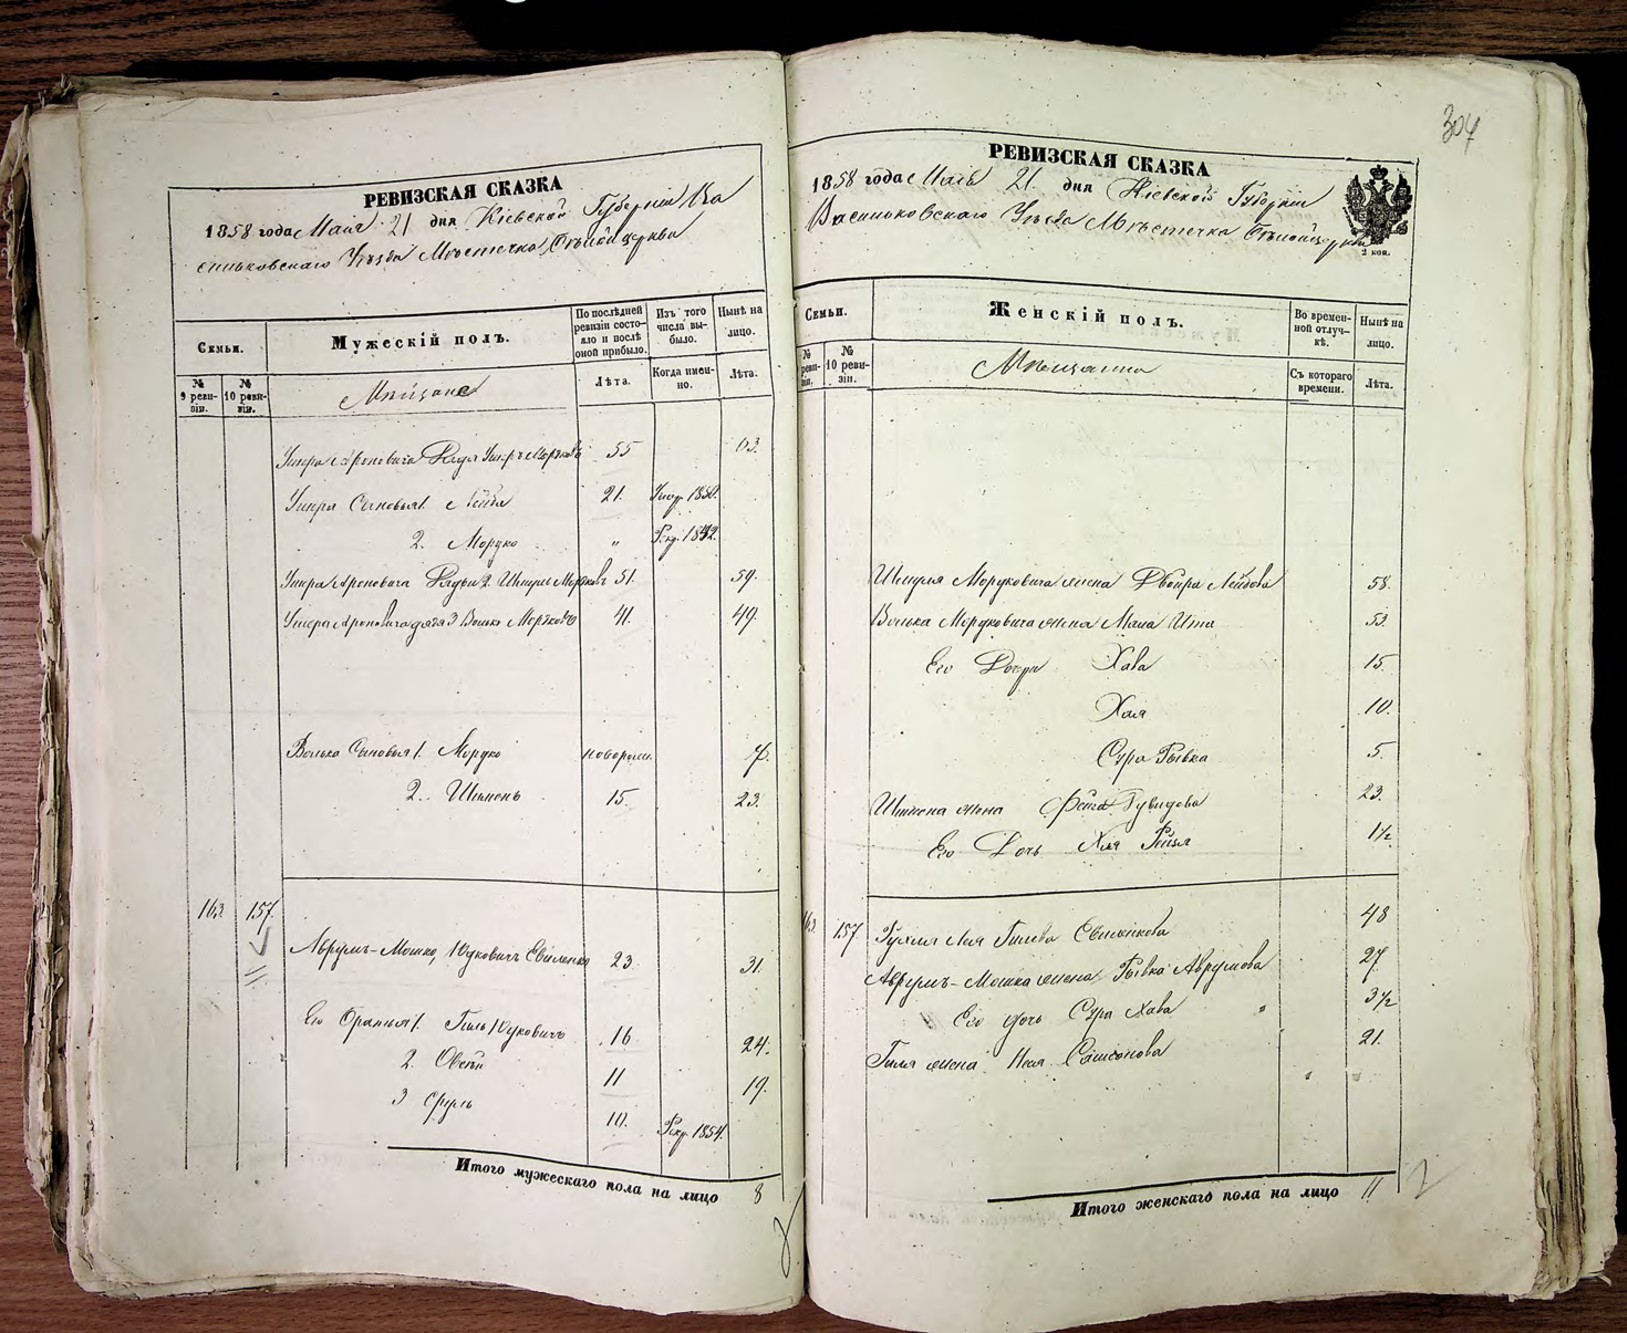 304
РЕВИЗСКАЯ СКАЗКА
1858 года Маія 21 дня Кіевской Губерніи Ва
сильковскаго Уѣзда Мѣстечка Бѣлойцеркви
Семьи.
Мужескій полъ.
По послѣдней ревизіи состо-
яло и послѣ оной прибыло.
Изъ того числа вы-
было.
Нынѣ на лицо.
№ 9 реви-
зіи.
№ 10 реви-
зіи.
Мѣщане
Лѣта.
Когда имен-
но.
Лѣта.
Умера Ароновича Дядя 55 63.
Умера Сыновья 1. Лейба 21. Умер. 1850.
2. Мордко „ Рекр. 1852.
Умера Ароновича Дядья 2. Шмуль Мордков 51. 59.
Умера Ароновича дядя 3 Волько Мордковъ 41. 49.
Волька Сыновья 1. Мордко новорож. 7.
2. Шимонъ 15. 23.
163. 157.
Аврумъ-Мошко, Юдковичъ 23 31.
Его Братья 1. Гиль Юдковичъ 16 24.
2. Овсѣй 11 19.
3 Сруль 10. Рекр. 1854.
Итого мужескаго пола на лицо 8
РЕВИЗСКАЯ СКАЗКА
1858 года Маія 21 дня Кіевской Губерніи
Васильковскаго Уѣзда Мѣстечка Бѣлойцеркви
2 коп.
Семьи.
Женскій полъ.
Во времен-
ной отлуч-
кѣ.
Нынѣ на лицо.
№ реви-
зіи.
№ 10 реви-
зіи.
Мѣщанки
Съ котораго времени.
Лѣта.
Шмуля Мордковича жена Двойра Лейбова 58.
Волька Мордковича жена Мала Ита 53.
Его Дочери Хава 15.
Хая 10.
Сура Рывка 5.
Шимона жена Фейга 23.
Его Дочь Хая Рейзя 1½
63. 157 Рухля Лея 48
Аврумъ-Мошка жена Рывка Аврумова 27
Его дочь Сура Хава „ 3½
Гиля жена Неся Самсонова 21.
Итого женскаго пола на лицо 11